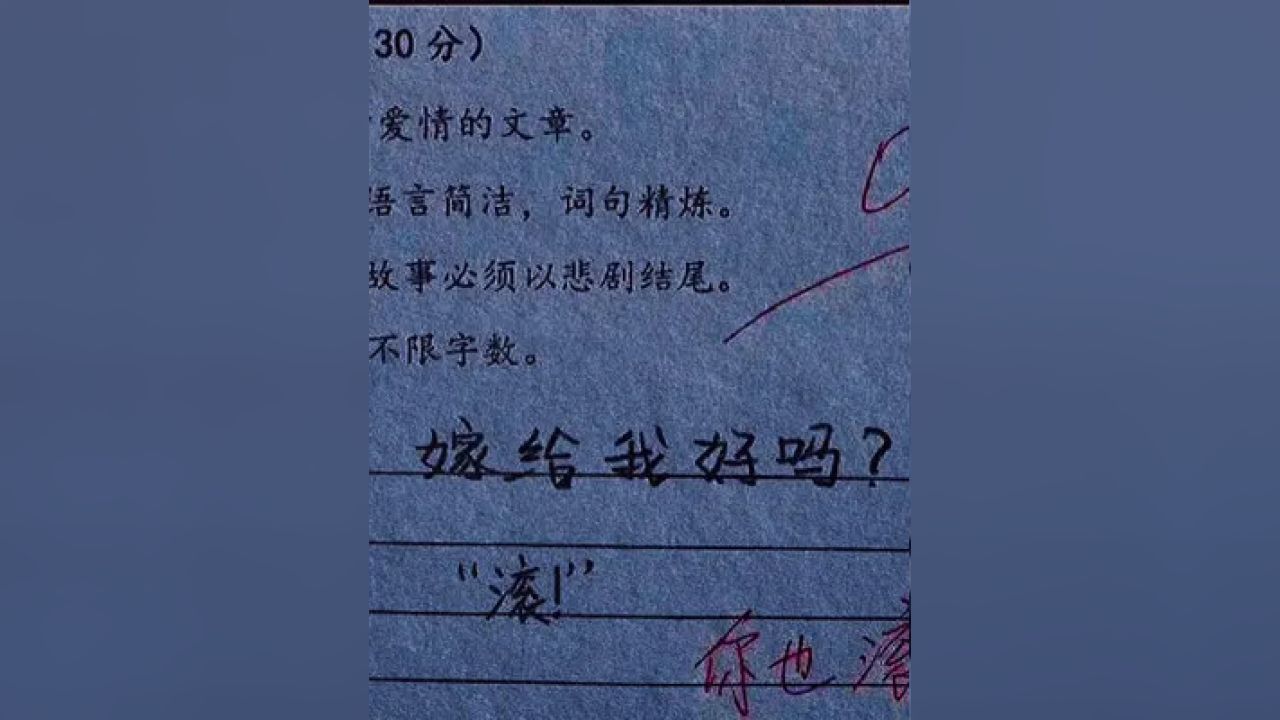 30 分）
爱情的文章。
语言简洁，词句精炼。
故事必须以悲剧结尾。
不限字数。
嫁给我好吗？
“滚！”
你也滚